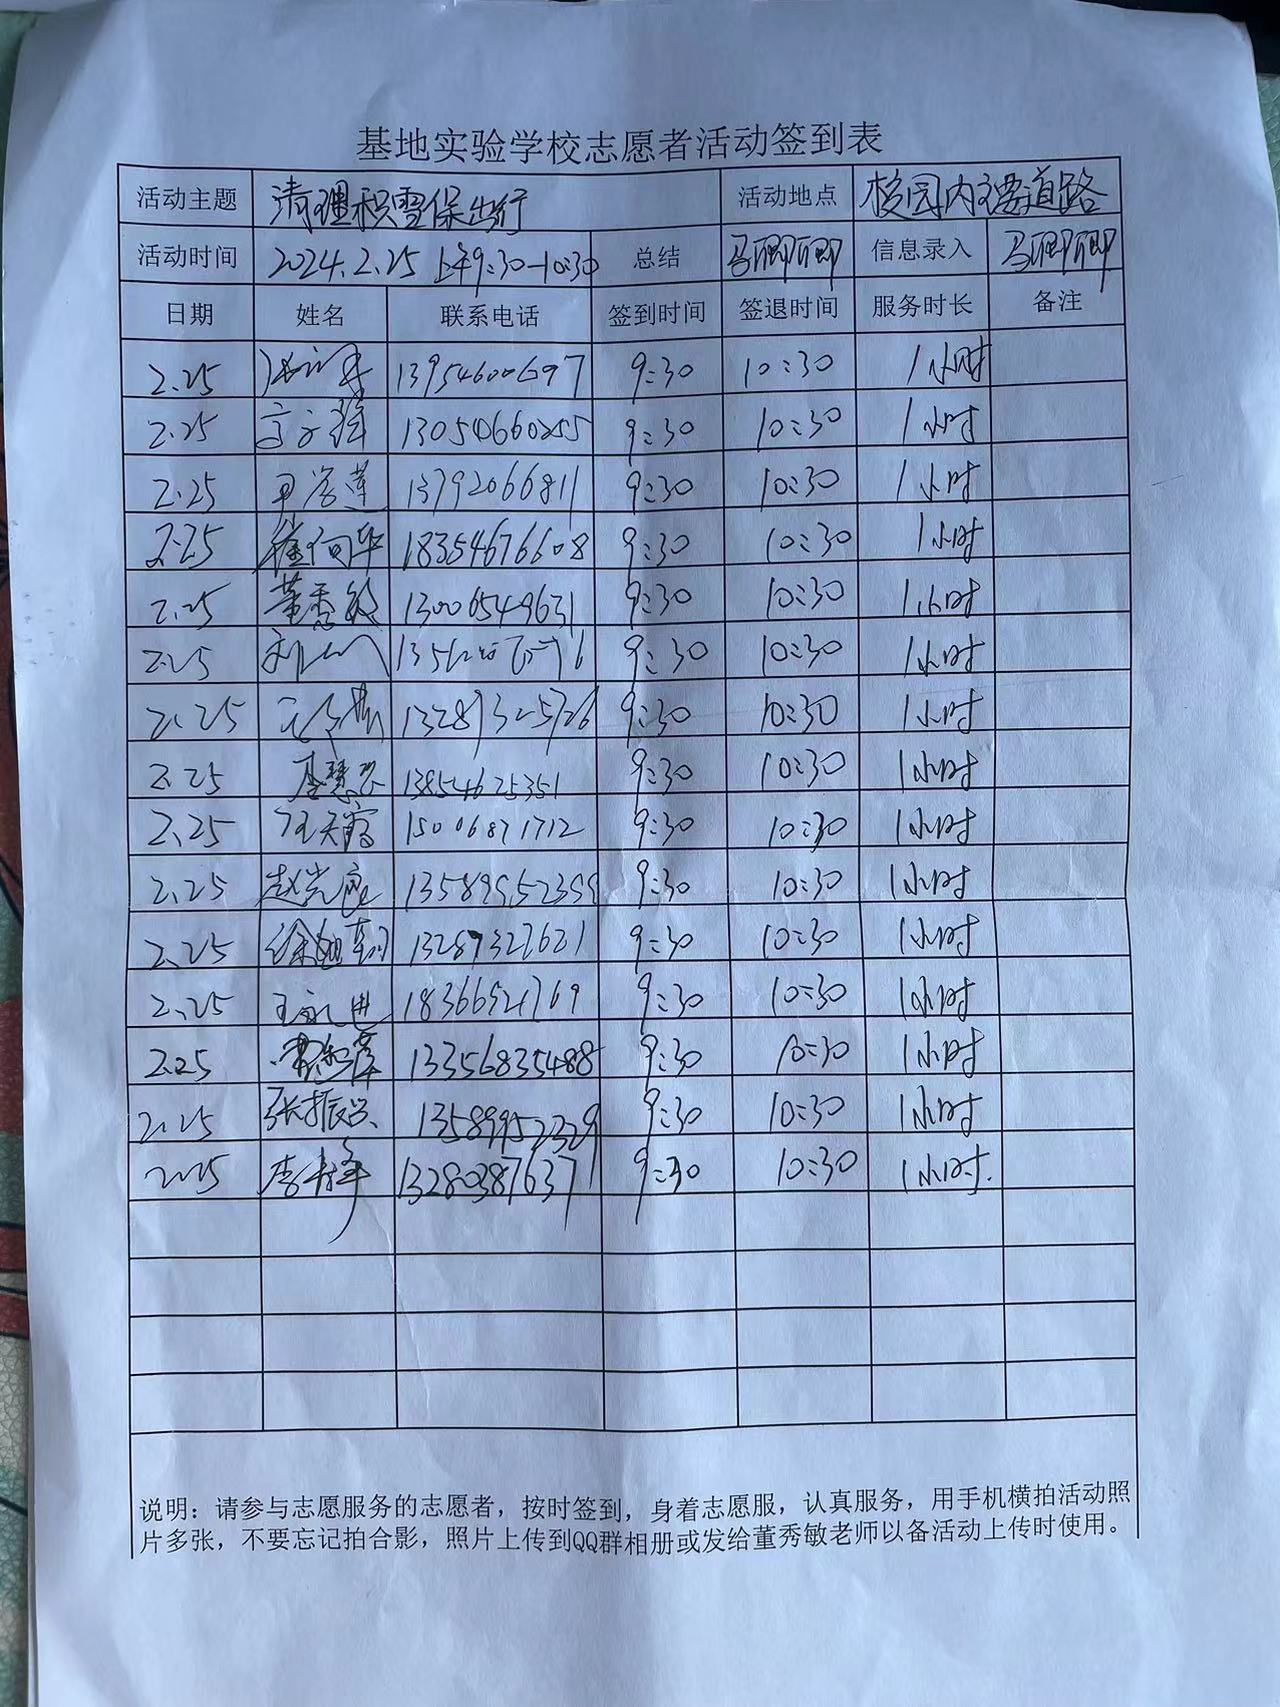 基地实验学校志愿者活动签到表
活动主题 清理积雪保出行 活动地点 校园内主要道路
活动时间 2024.2.25 上午9:30-10:30 总结 马卿卿 信息录入 马卿卿
日期 姓名 联系电话 签到时间 签退时间 服务时长 备注
2.25 13954600697 9:30 10:30 1小时
2.25 13054660255 9:30 10:30 1小时
2.25 13792066811 9:30 10:30 1小时
2.25 崔向华 18354676608 9:30 10:30 1小时
2.25 董秀敏 13006549631 9:30 10:30 1小时
2.25 9:30 10:30 1小时
2.25 13289325726 9:30 10:30 1小时
2.25 13854625351 9:30 10:30 1小时
2.25 15006871712 9:30 10:30 1小时
2.25 赵光 13589952399 9:30 10:30 1小时
2.25 徐 13289327621 9:30 10:30 1小时
2.25 王永进 18366521769 9:30 10:30 1小时
2.25 13356835488 9:30 10:30 1小时
2.25 张振兴 13589952329 9:30 10:30 1小时
2.25 李 13280387637 9:30 10:30 1小时.
说明：请参与志愿服务的志愿者，按时签到，身着志愿服，认真服务，用手机横拍活动照
片多张，不要忘记拍合影，照片上传到QQ群相册或发给董秀敏老师以备活动上传时使用。